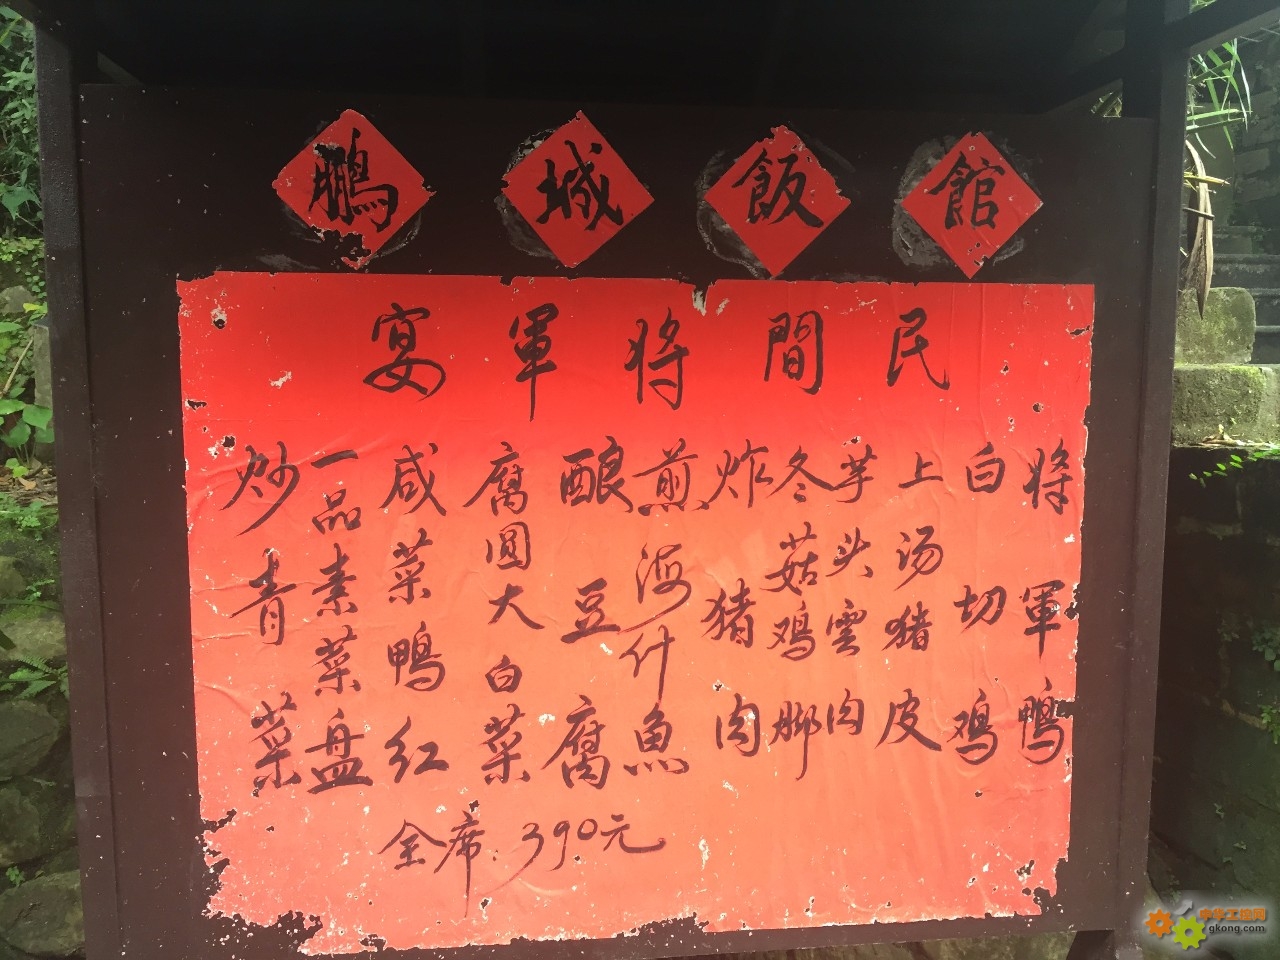 鹏城飯館
民間将軍宴
将軍鴨
白切鸡
上汤猪皮
芋头雲肉
冬菇鸡脚
炸猪肉
煎海什魚
酿豆腐
腐圆大白菜
咸菜鴨红
一品素菜盘
炒青菜
全席.390元
中华工控网
gkong.com